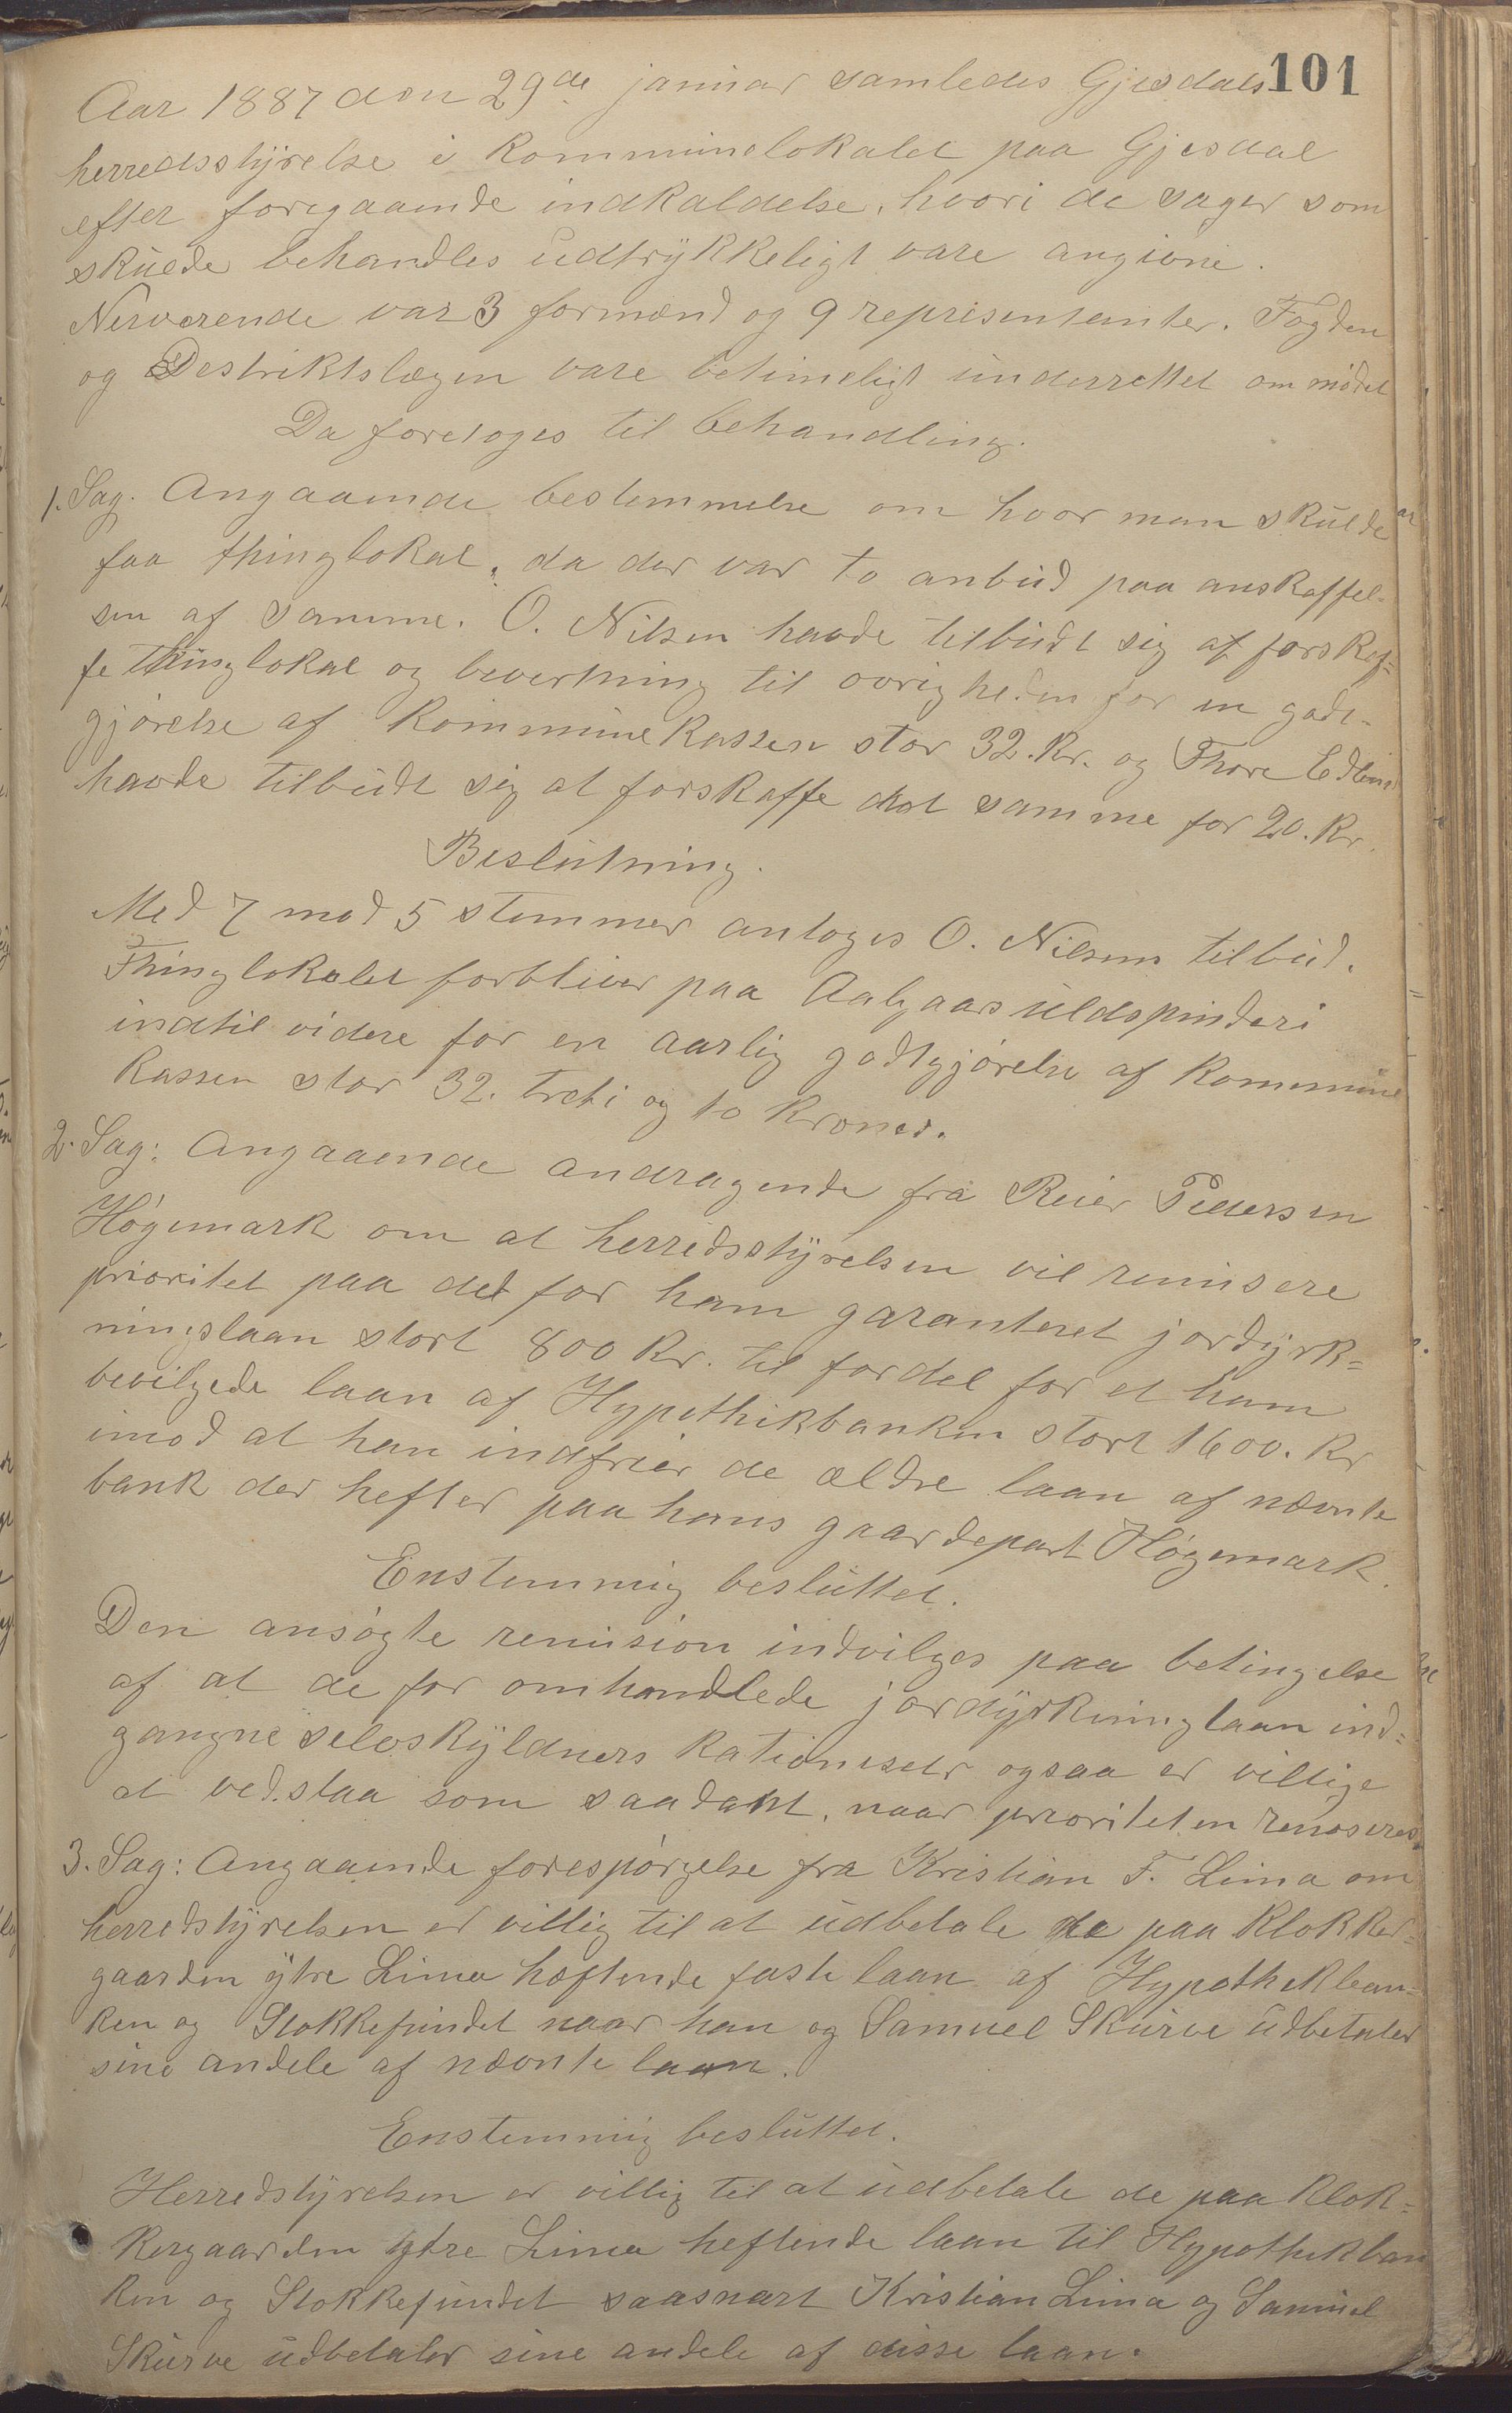 101
Aar 1887 den 29de januar samledes Gjesdals
herredsstyrelse i Kommunelokalet paa Gjesdal
efter foregaaende indkaldelse, hvori de sager som
skulde behandles udtrykkeligt vare angivne.
Nerverende var 3 formænd og 9 representanter. Fogden
og Destriktslægen vare betimeligt underrettet om mødet
Da foretoges til behandling.
1. Sag. Angaaende bestemmelse om hvor man skulde
faa thinglokal, da der var to anbud paa anskaffel-
sen af samme. O. Nilsen havde tilbudt sig at forskaf-
fe thinglokal og bevertning til øvrigheden for en godt-
gjørelse af Kommunekassen stor 32. Kr. og Thore Edland
havde tilbudt sig at forskaffe det samme for 20. Kr.
Beslutning.
Med 7 mod 5 stemmer antoges O. Nilsens tilbud.
Thinglokalet forbliver paa Aalgaars uldspinderi
indtil videre for en aarlig godtgjørelse af Kommune
Kassen stor 32. treti og to Kroner.
2. Sag: Angaaende andragende fra Reier Pedersen
Høgemark om at herredsstyrelsen vil remisere
prioritet paa det for ham garanteret jordyrk-
ningslaan stort 800 Kr. til fordel for et ham
bevilgede laan af Hypothikbanken stort 1600. Kr
imod at han indfrier de ældre laan af nævnte
bank der hefter paa hans gaardepart Høgemark.
Enstemmig besluttet.
Den ansøgte remision indvilges paa betingelse
af at de for omhandlede jordyrkninglaan ind-
gangne selvskyldners Kationister ogsaa er villige
at vedstaa som saadant, naar prioriteten remiseres.
3. Sag: Angaaende forespørgelse fra Kristian F. Lima om
herredstyrelsen er villig til at udbetale de paa Klokker-
gaarden ytre Lima hæftende faste laan af Hypothekban-
ken og Stokkefundet naar han og Samuel Skurve udbetaler
sine andele af nævnte laan.
Enstemmig besluttet.
Herredstyrelsen er villig til at udbetale de paa Klok-
kergaarden ytre Lima heftende laan til Hypothekban
ken og Stokkefundet saasnart Kristian Lima og Samuel
Skurve udbetaler sine andele af disse laan.